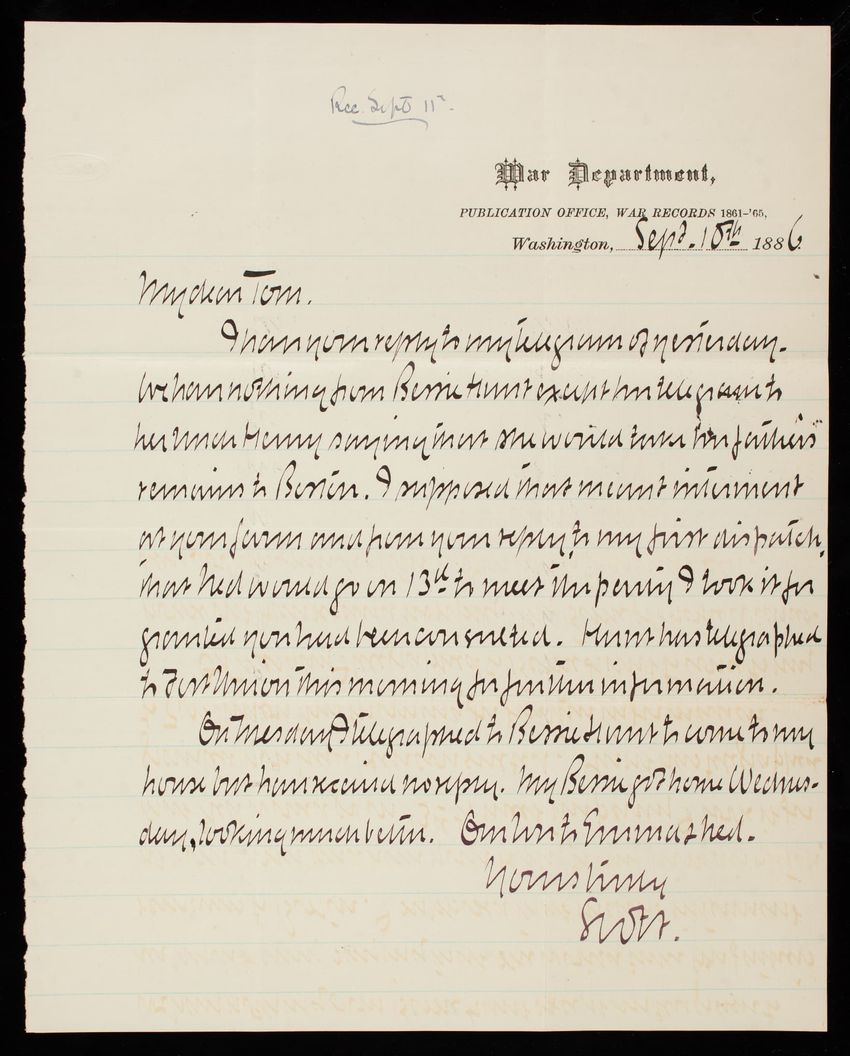 Rec. Sept 11th.
War Department,
PUBLICATION OFFICE, WAR RECORDS 1861-'65,
Washington, Sept. 10th 1886
My dear Tom.
I have your reply to my telegram of yesterday.
We have nothing from Bessie Hunt except her telegram to
her Uncle Henry saying that she would take her father's
remains to Boston. I supposed that meant interment
at your farm and from your reply, to my first dispatch,
that Ned would go on 13th to meet the party I took it for
granted you had been consulted. Hunt has telegraphed
to Fort Union this morning for further information.
On Tuesday I telegraphed to Bessie Hunt to come to my
house but have received no reply. My Bessie got home Wednes-
day, looking much better. Our love to Emma & Ned.
Yours truly
Scott.